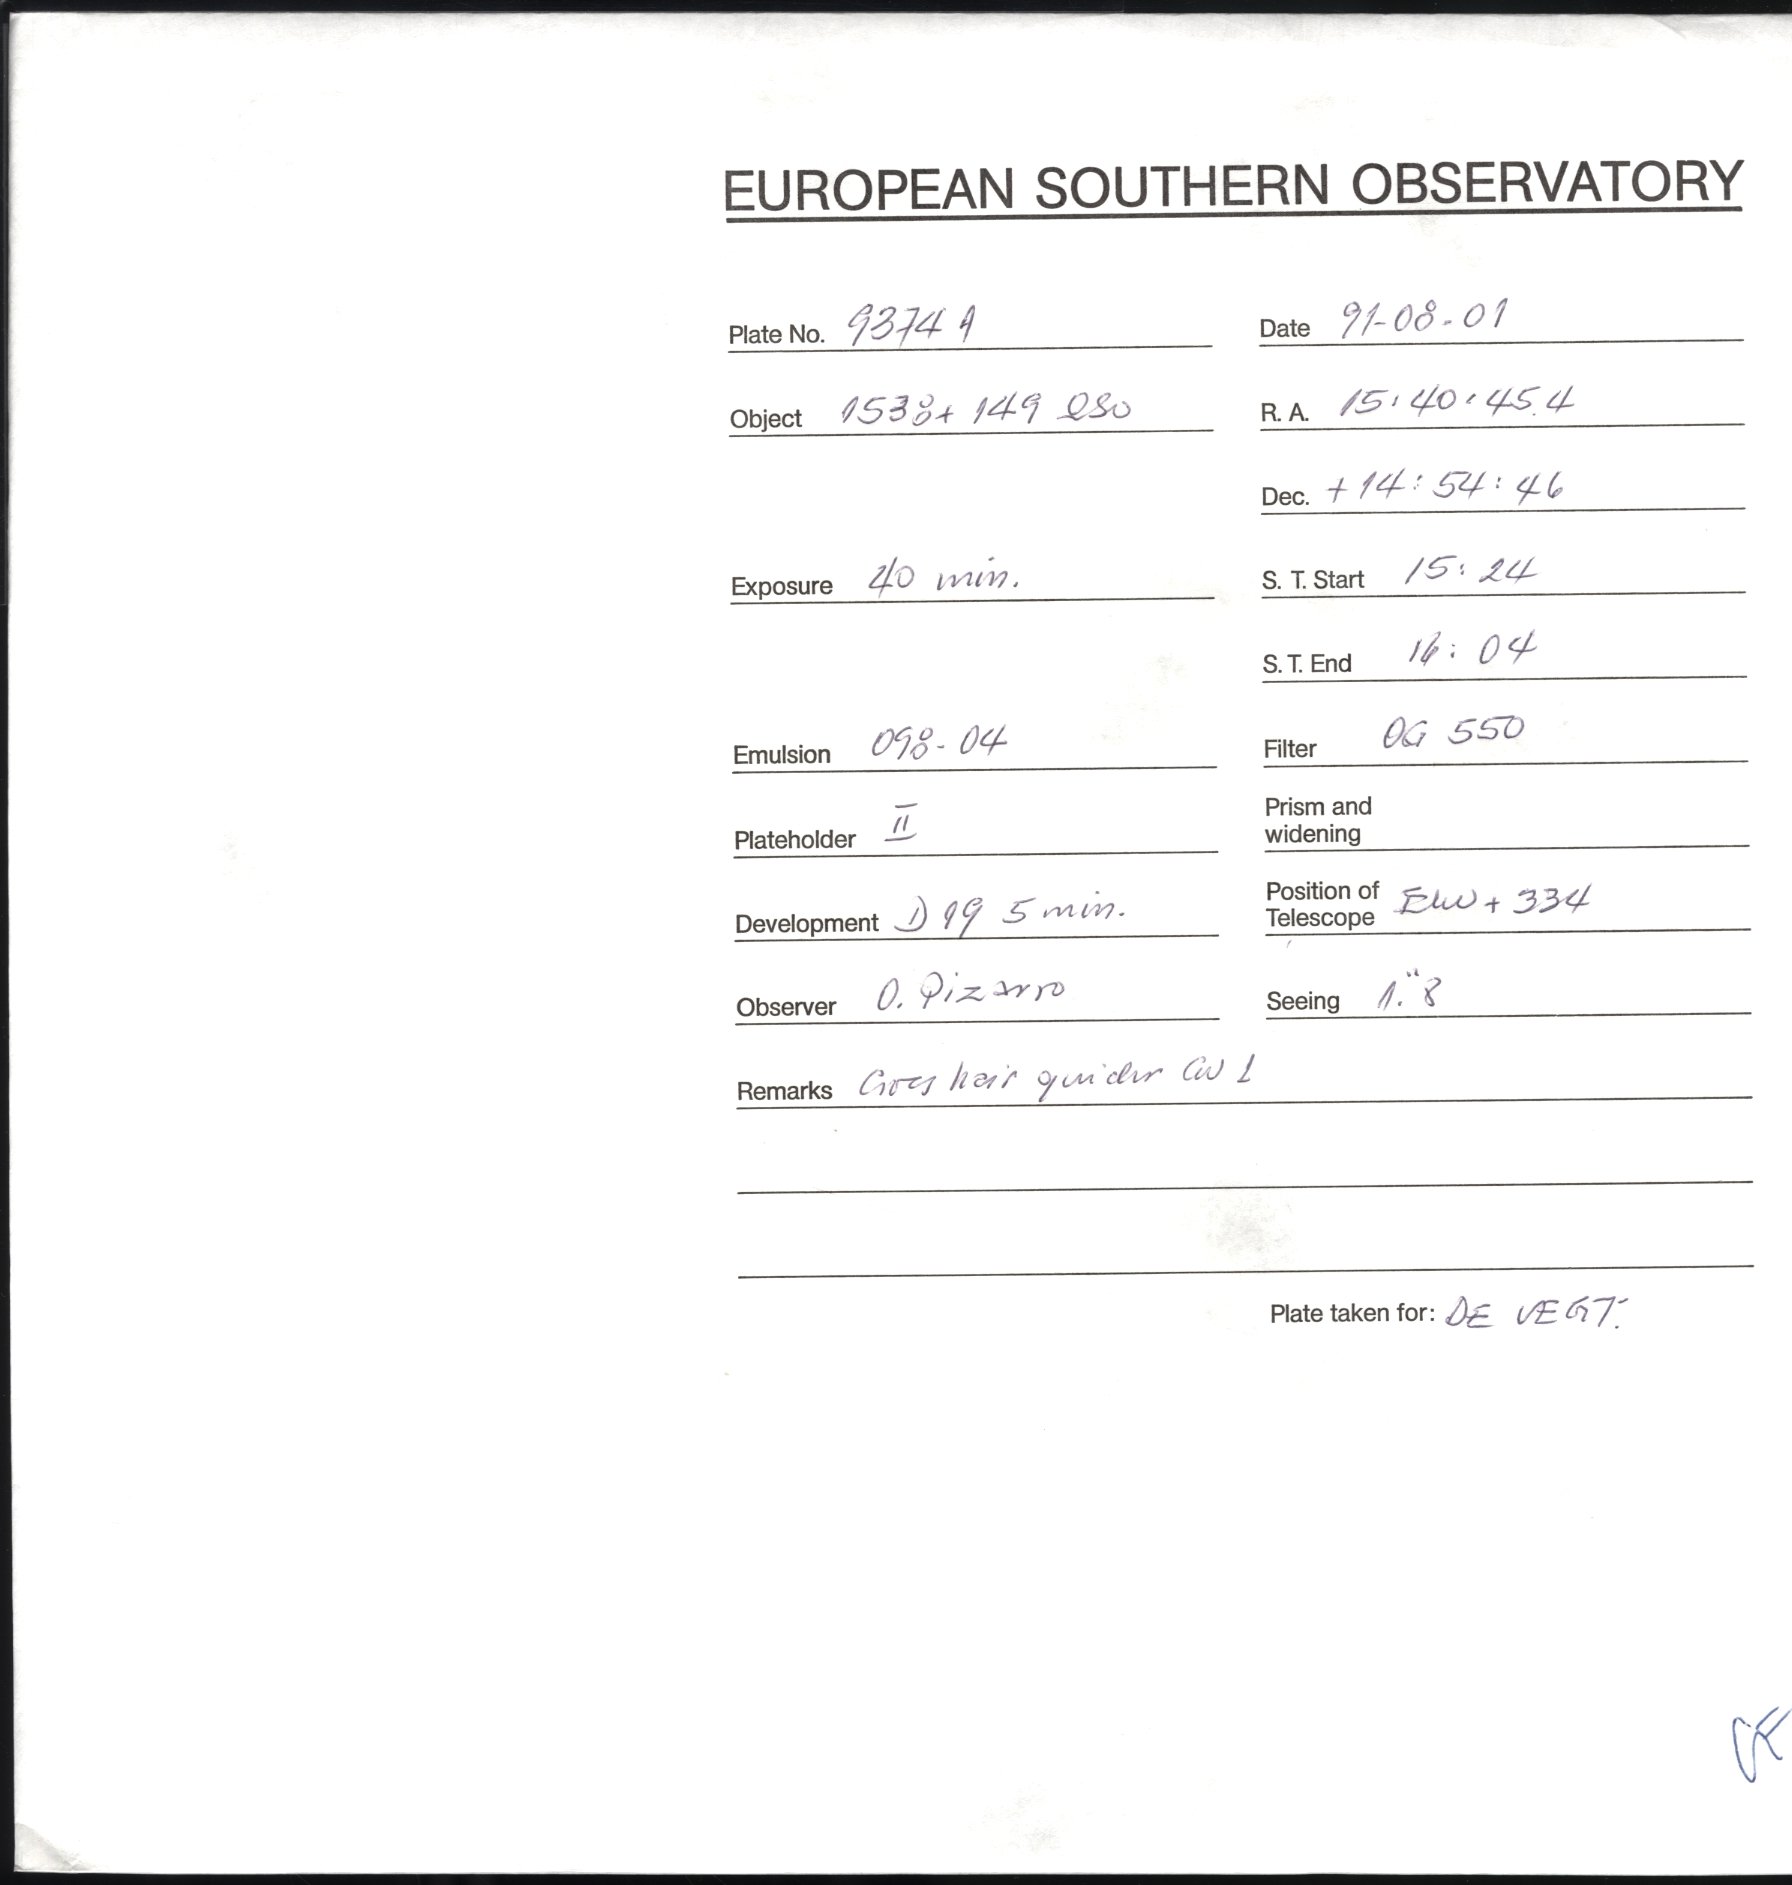 EUROPEAN SOUTHERN OBSERVATORY
Plate No. 9374 A Date 91-08-01
Object 1538+149 QSO R. A. 15:40:45.4
Dec. +14:54:46
Exposure 40 min. S. T. Start 15:24
S. T. End 16:04
Emulsion 098-04 Filter OG 550
Plateholder II Prism and widening
Development D19 5 min. Position of Telescope EW + 334
Observer O. Pizarro Seeing 1."8
Remarks Croes hair guider
Plate taken for: DE VEGT.